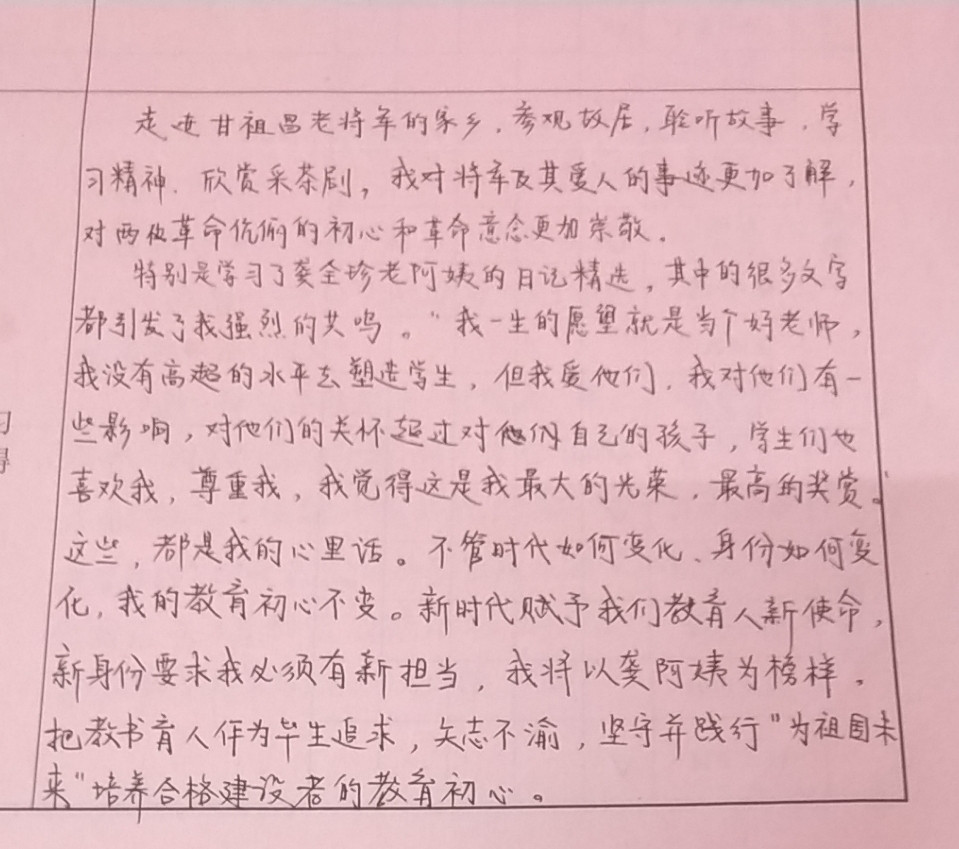 走进甘祖昌老将军的家乡，参观故居，聆听故事，学
习精神、欣赏采茶剧，我对将军及其爱人的事迹更加了解，
对两位革命伉俪的初心和革命意念更加崇敬。
特别是学习了龚全珍老阿姨的日记精选，其中的很多文字
都引发了我强烈的共鸣。“我一生的愿望就是当个好老师，
我没有高超的水平去塑造学生，但我爱他们，我对他们有一
些影响，对他们的关怀超过对自己的孩子，学生们也
喜欢我，尊重我，我觉得这是我最大的光荣，最高的奖赏。
这些，都是我的心里话。不管时代如何变化、身份如何变
化，我的教育初心不变。新时代赋予我们教育人新使命，
新身份要求我必须有新担当，我将以龚阿姨为榜样，
把教书育人作为毕生追求，矢志不渝，坚守并践行“为祖国未
来”培养合格建设者的教育初心。
习
得